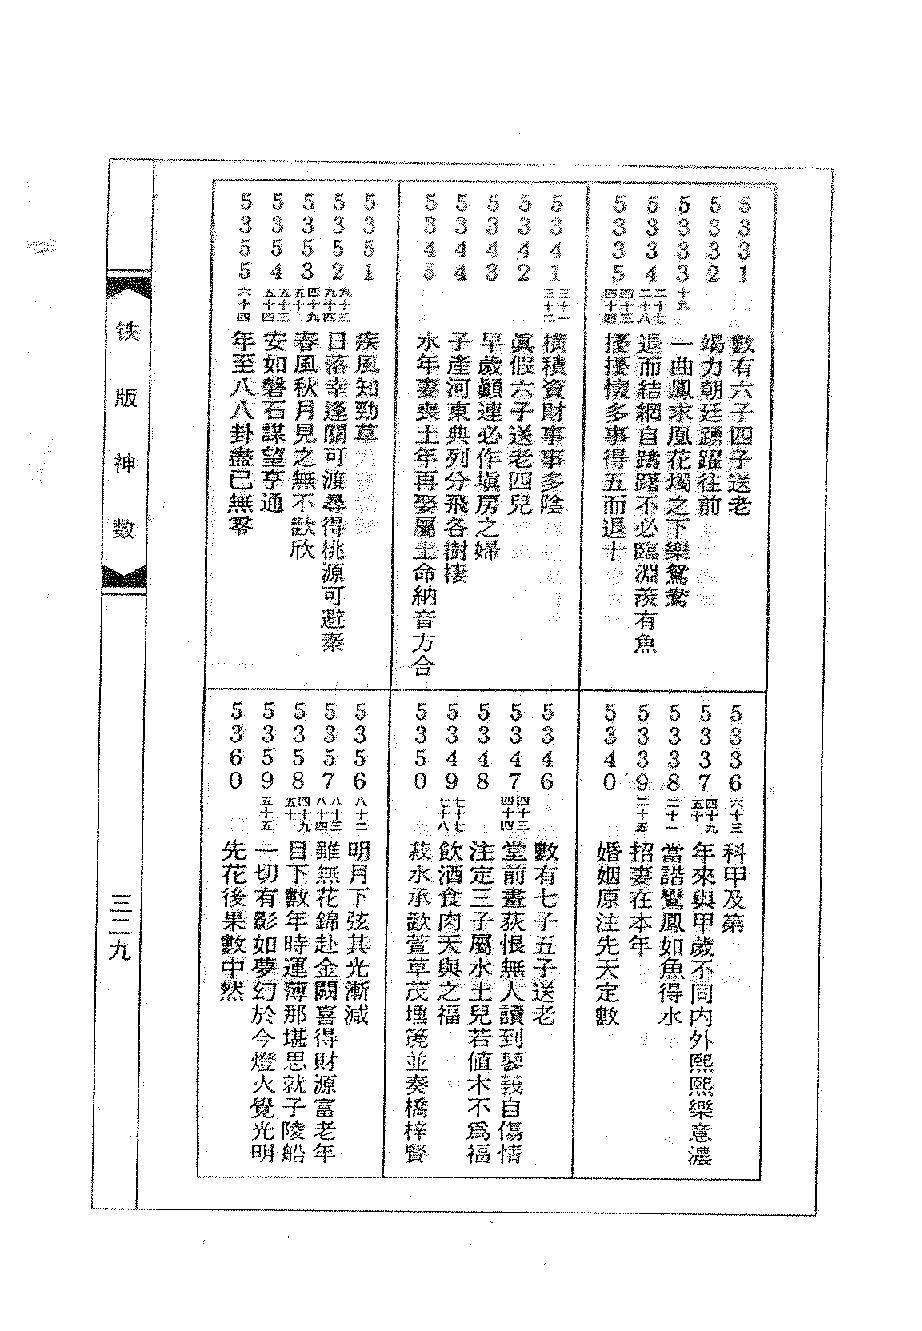 5331 數有六子四子送老
5332 竭力朝廷踴躍往前
5333 十九 一曲鳳求凰花燭之下樂鴛鴦
5334 二十七 二十八 退而結網自躊躇不必臨淵羨有魚
5335 四十三 四十四 擾擾懷多事得五而退十
5336 六十三 科甲及第
5337 四十九 五十 年來與甲歲不同內外熙熙樂意濃
5338 二十一 當諧鸞鳳如魚得水
5339 二十五 招妻在本年
5340 婚姻原注先天定數
5341 三十一 三十二 橫積資財事事多陰
5342 眞假六子送老四兒
5343 早歲顚連必作塡房之婦
5344 子產河東典列分飛各樹棲
5345 水年妻喪土年再娶屬土命納音方合
5346 數有七子五子送老
5347 四十三 四十四 堂前畫荻恨無人讀到蓼莪自傷情
5348 注定三子屬水土兒若値木不爲福
5349 七十七 七十八 飮酒食肉天與之福
5350 菽水承歡萱草茂壎篪並奏橋梓賢
5351 疾風知勁草
5352 九十三 九十四 日落幸逢關可渡尋得桃源可避秦
5353 四十九 五十 春風秋月見之無不歡欣
5354 五十三 五十四 安如磐石謀望亨通
5355 六十四 年至八八卦盡已無零
5356 八十二 明月下弦其光漸減
5357 八十三 八十四 雖無花錦赴金闕喜得財源富老年
5358 四十九 五十 目下數年時運薄那堪思就子陵船
5359 五十五 一切有影如夢幻於今燈火覺光明
5360 先花後果數中然
铁版神数
三二九